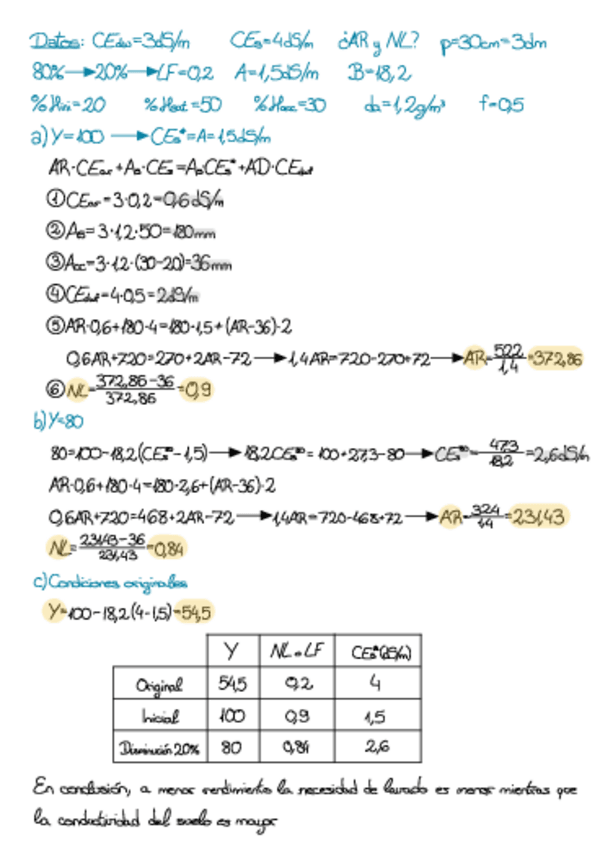 Datos: CEdw=3dS/m CEs=4dS/m ¿AR y NL? p=30cm=3dm
80%→20%→LF=0,2 A=1,5dS/m B=18,2
%Hini=20 %Hsat=50 %Hacc=30 da=1,2g/m³ f=0,5
a) Y=100 → CEs*=A=1,5dS/m
AR·CEar+As·CEs=AsCEs*+AD·CEdw
①CEar=3·0,2=0,6dS/m
②As=3·1,2·50=180mm
③Acc=3·1,2·(30-20)=36mm
④CEdw=4·0,5=2dS/m
⑤AR·0,6+180·4=180·1,5+(AR-36)·2
0,6AR+720=270+2AR-72→1,4AR=720-270+72→AR=522/1,4=372,86
⑥NL=372,86-36/372,86=0,9
b) Y=80
80=100-18,2(CEs*-1,5)→18,2CEs*=100+27,3-80→CEs*=47,3/18,2=2,6dS/m
AR·0,6+180·4=180·2,6+(AR-36)·2
0,6AR+720=468+2AR-72→1,4AR=720-468+72→AR=324/1,4=231,43
NL=231,43-36/231,43=0,84
c) Condiciones originales
Y=100-18,2(4-1,5)=54,5
Y NL o LF CEs*(dS/m)
Original 54,5 0,2 4
Inicial 100 0,9 1,5
Disminución 20% 80 0,84 2,6
En conclusión, a menor rendimiento la necesidad de lavado es menor mientras que
la conductividad del suelo es mayor